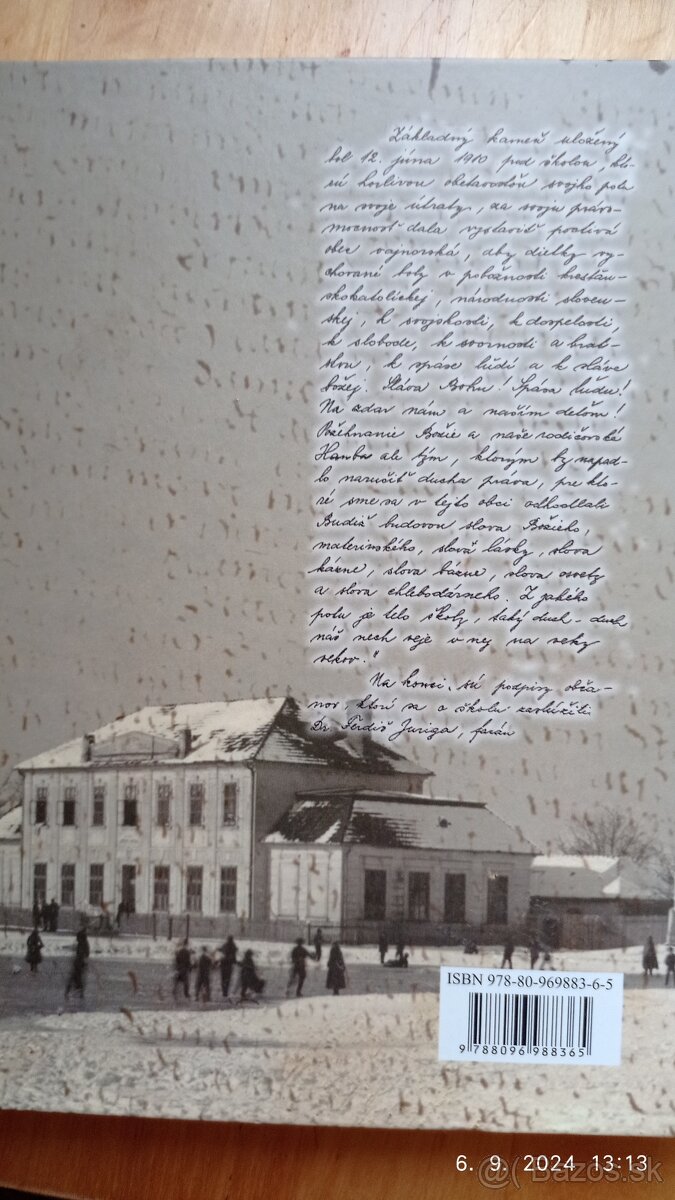 Základný kameň uložený
bol 12. júna 1910 pod školou, kto-
rú horlivou obetavosťou svojho poľa
na svoje útraty, za svoju právo-
mocnosť dala vystaviť poctivá
obec vajnorská, aby dietky vy-
chované boly v pobožnosti kresťan-
skokatolíckej, národnosti sloven-
skej, k svojskosti, k dospelosti,
k slobode, k svornosti a brat-
stvu, k spáse ľudí a k sláve
božej. Sláva Bohu! Spása ľudu!
Na zdar nám a našim deťom!
Požehnanie Božie a naše rodičovské
Hanba ale tým, ktorým by napad-
lo narušiť ducha práva, pre kto-
ré sme sa v tejto obci odhodlali
Budiž budovou slova Božieho,
materinského, slova lásky, slova
kázne, slova bázne, slova osvety
a slova chlebodárneho. Z jakého
poľu je telo školy, taký duch - duch
náš nech veje v nej na veky
vekov."
Na konci sú podpisy obča-
nov, ktorí sa o školu zaslúžili:
Dr. Ferdiš Juriga, farár
ISBN 978-80-969883-6-5
9 788096 988365
6. 9. 2024 13:13
@Bazos.sk